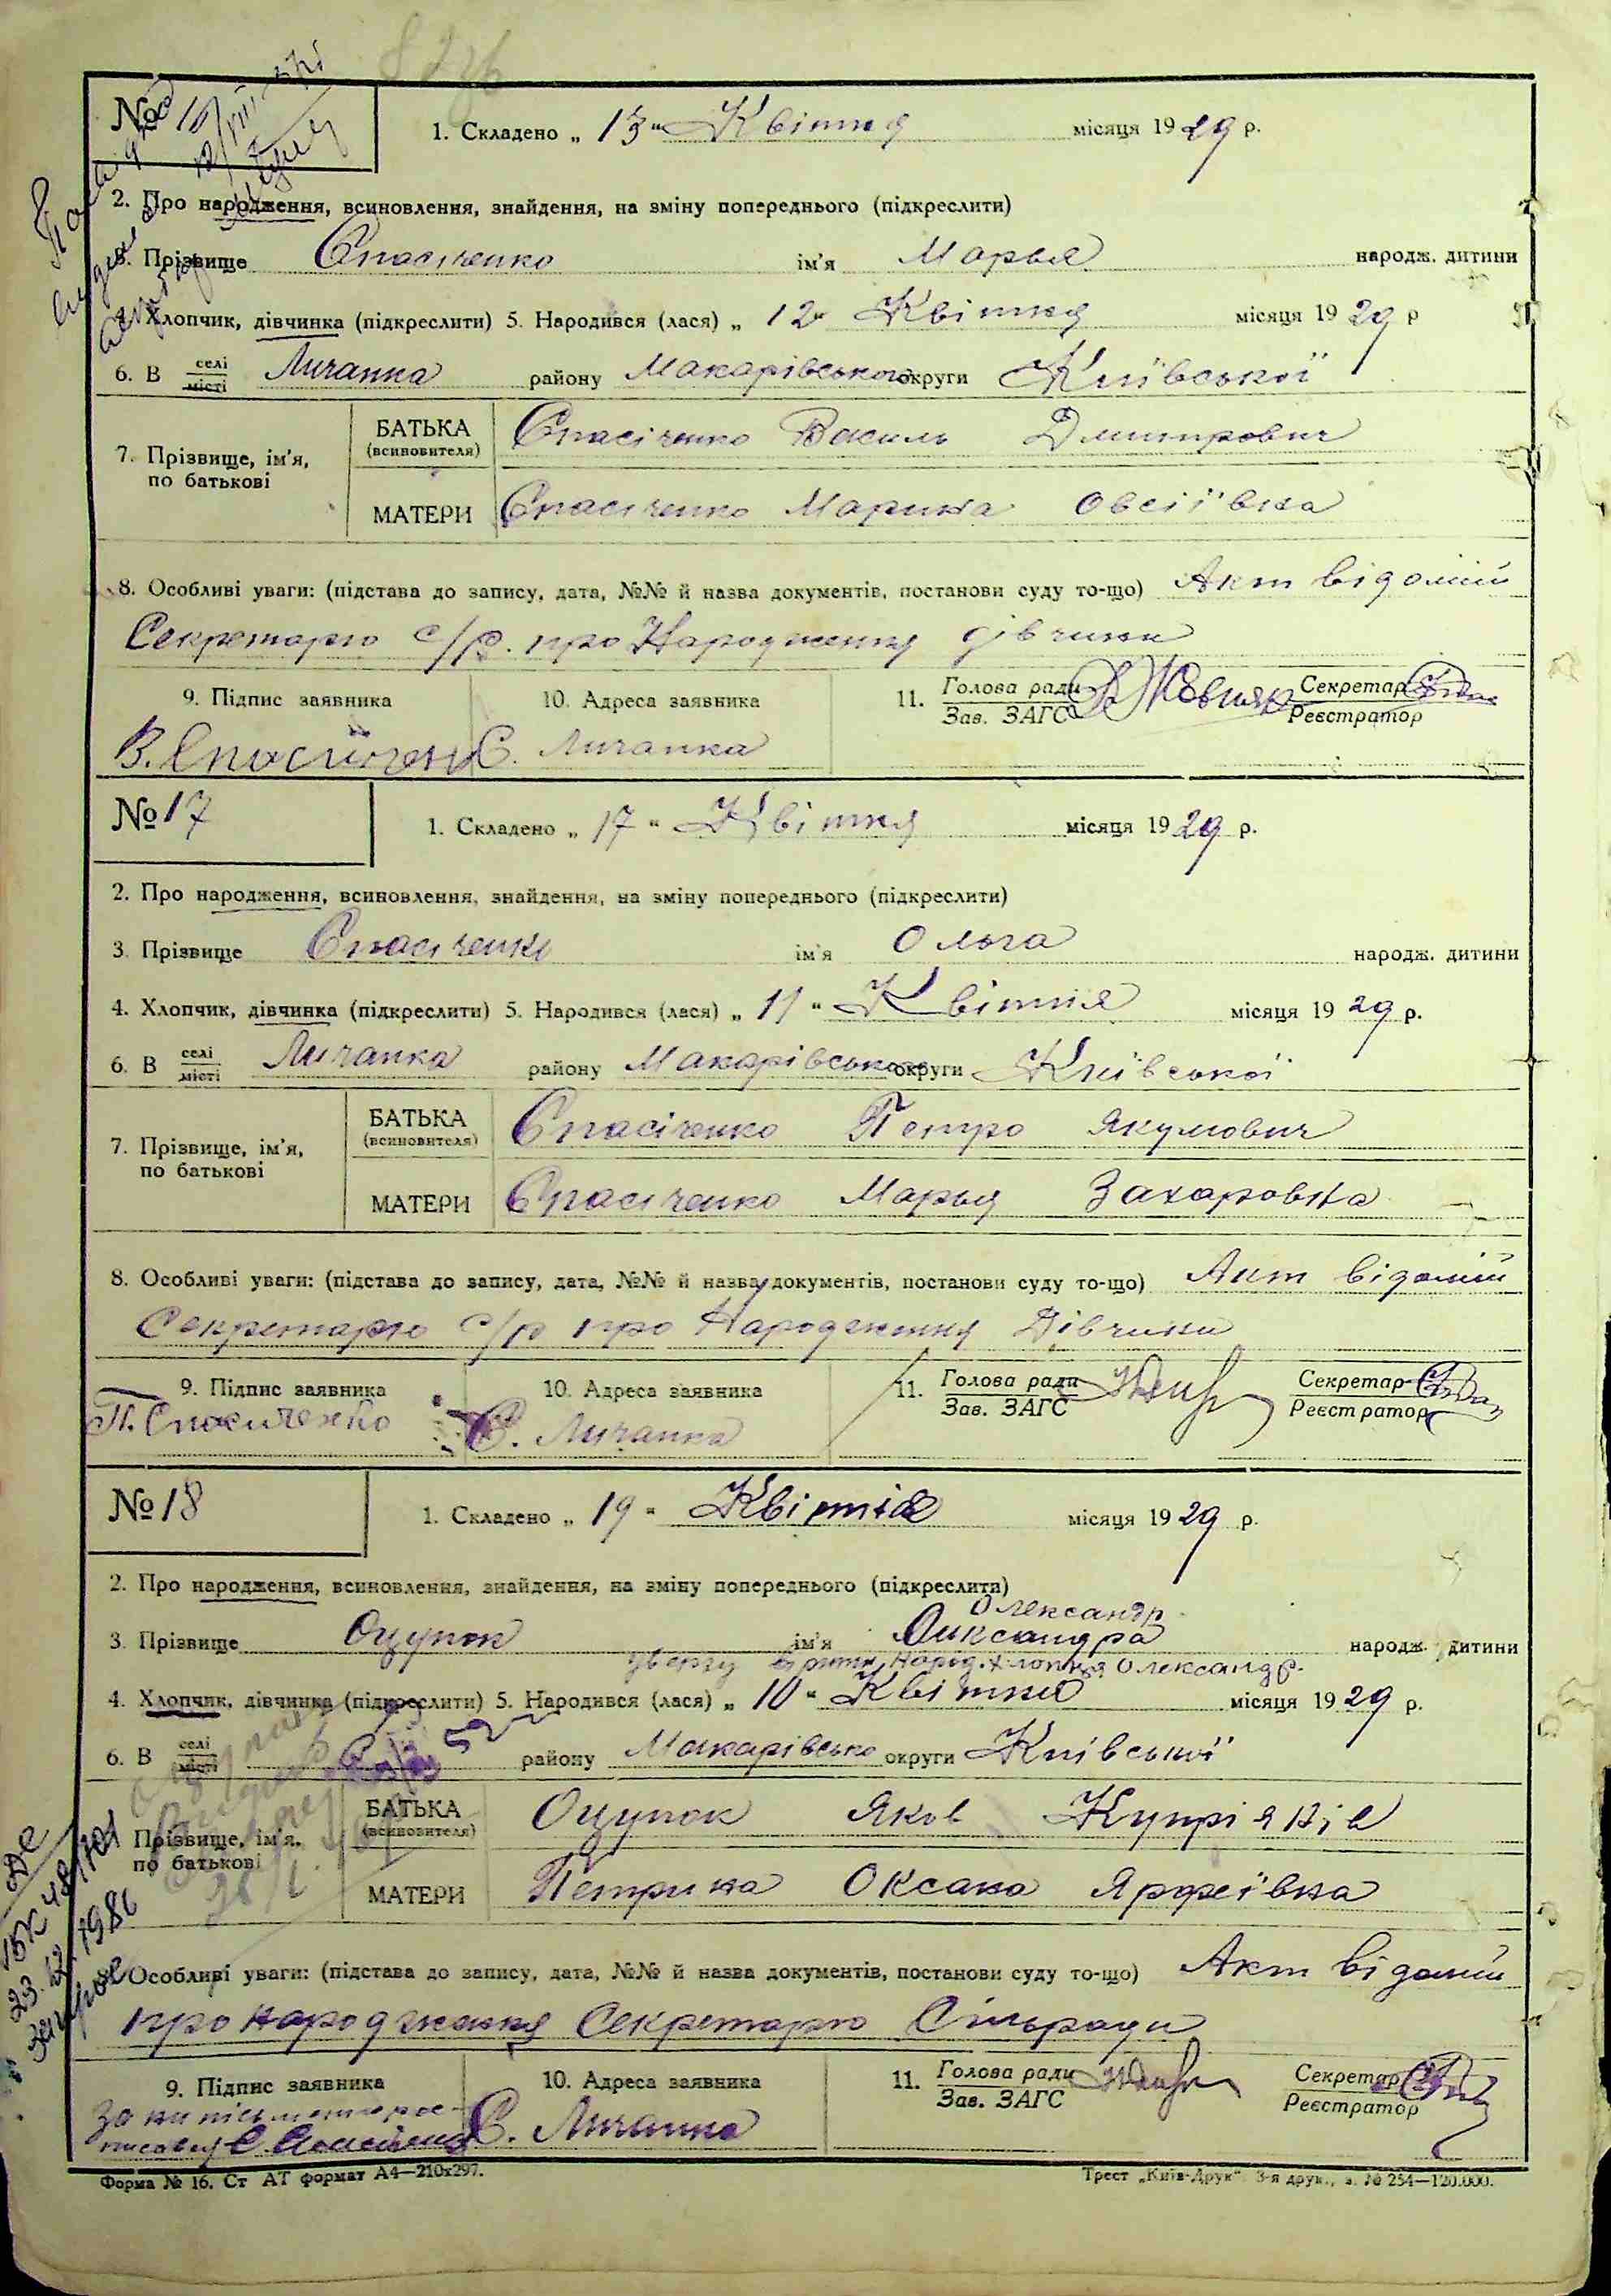 № 16
1. Складено „ 13 " Квітня місяця 1929 р.
2. Про народження, всиновлення, знайдення, на зміну попереднього (підкреслити)
3. Прізвище Спасіченко ім'я Марья народж. дитини
4. Хлопчик, дівчинка (підкреслити) 5. Народився (лася) „ 12 " Квітня місяця 1929 р
6. В селі місті Личанка району Макарівського округи Київської
7. Прізвище, ім'я, по батькові
БАТЬКА (всиновителя) Спасіченко Василь Дмитрович
МАТЕРИ Спасіченко Марина Овсіївна
8. Особливі уваги: (підстава до запису, дата, №№ й назва документів, постанови суду то-що) Акт відомий
Секретарю с/р. про Народження дівчини
9. Підпис заявника 10. Адреса заявника 11. Голова ради Секретар
Зав. ЗАГС Реєстратор
В. Спасіченко С. Личанка
№ 17
1. Складено „ 17 " Квітня місяця 1929 р.
2. Про народження, всиновлення, знайдення, на зміну попереднього (підкреслити)
3. Прізвище Спасіченко ім'я Ольга народж. дитини
4. Хлопчик, дівчинка (підкреслити) 5. Народився (лася) „ 11 " Квітня місяця 1929 р.
6. В селі місті Личанка району Макарівського округи Київської
7. Прізвище, ім'я, по батькові
БАТЬКА (всиновителя) Спасіченко Петро Якумович
МАТЕРИ Спасіченко Марья Захаровна
8. Особливі уваги: (підстава до запису, дата, №№ й назва документів, постанови суду то-що) Акт відомий
Секретарю с/р про Народження Дівчини
9. Підпис заявника 10. Адреса заявника 11. Голова ради Секретар
Зав. ЗАГС Реєстратор
П. Спасиченко С. Личанка
№ 18
1. Складено „ 19 " Квітня місяця 1929 р.
2. Про народження, всиновлення, знайдення, на зміну попереднього (підкреслити)
Олександр
3. Прізвище Оцупок ім'я Олександра народж. дитини
Народ. хлопця Олександр.
4. Хлопчик, дівчинка (підкреслити) 5. Народився (лася) „ 10 " Квітня місяця 1929 р.
6. В селі місті району Макарівсько округи Київської
7. Прізвище, ім'я, по батькові
БАТЬКА (всиновителя) Оцупок Яков Купріянів
МАТЕРИ Петрина Оксана Ярфеївна
8. Особливі уваги: (підстава до запису, дата, №№ й назва документів, постанови суду то-що) Акт відомий
про народження Секретарю Сільради
9. Підпис заявника 10. Адреса заявника 11. Голова ради Секретар
Зав. ЗАГС Реєстратор
С. Личанка
Форма № 16. Ст АТ формат А4—210х297.
Трест „Київ-Друк" 3-я друк., з. № 254—120.000.